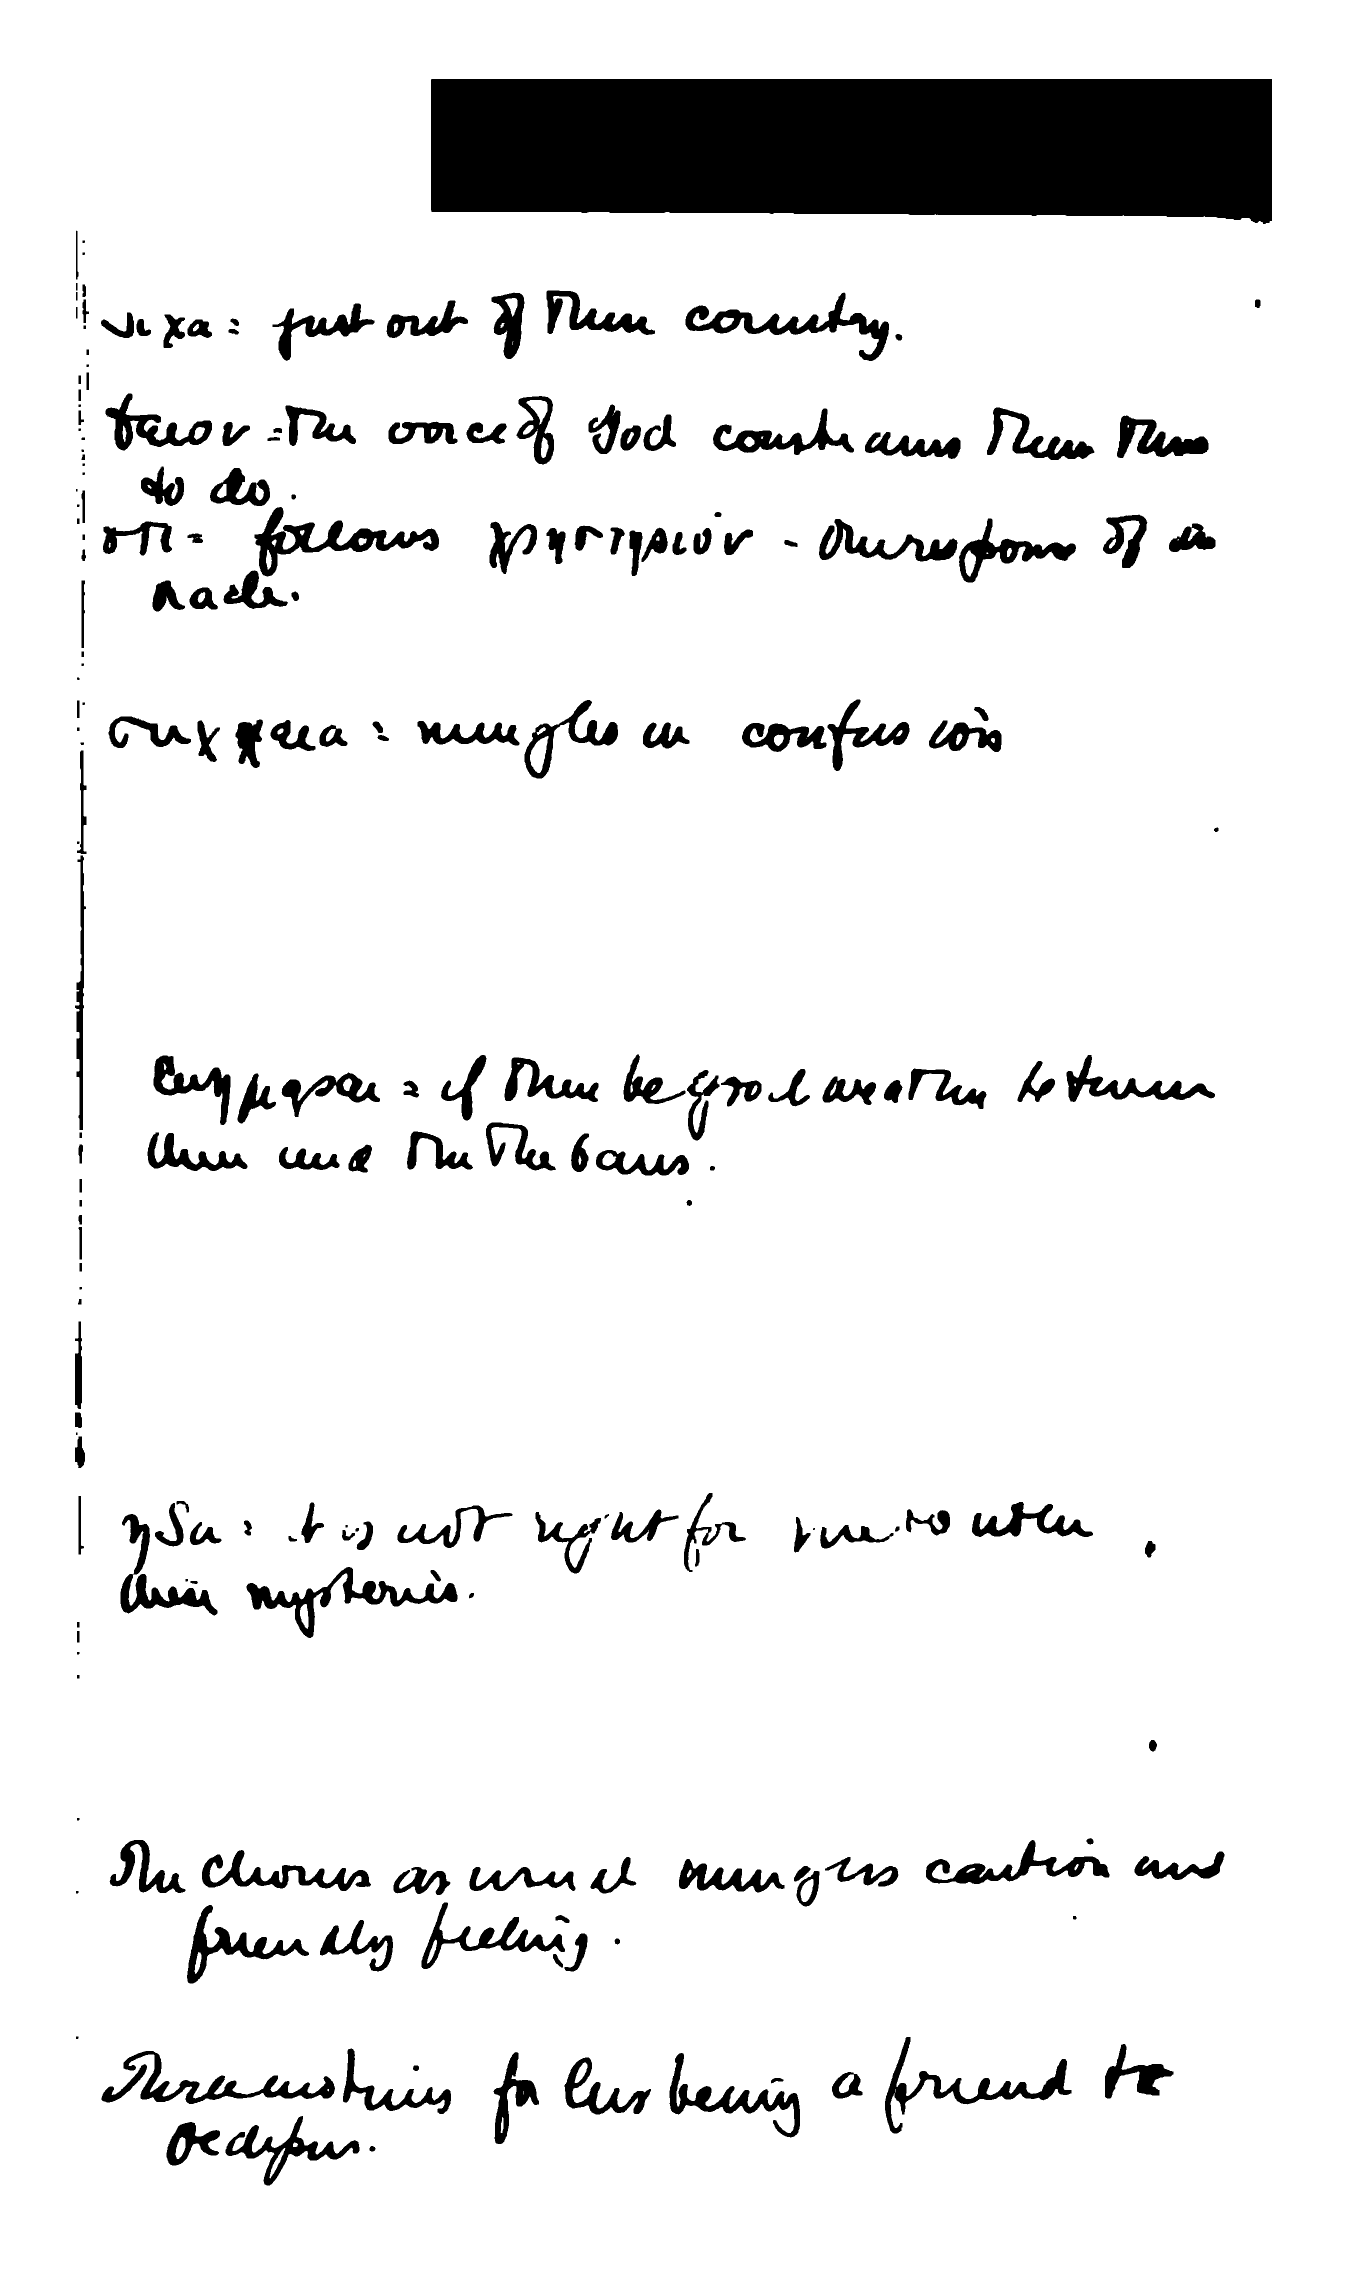 just out of their country.
the voice of God constrains them thus
to do.
= follows χρηστηριον - the response of an
oracle.
= mingles in confusion
= if there be good weather between
them and the Thebans.
ηδα: it is not right for me to utter
their mysteries.
The Chorus as usual mingles caution and
friendly feeling.
There are motives for his being a friend to
Oedipus.